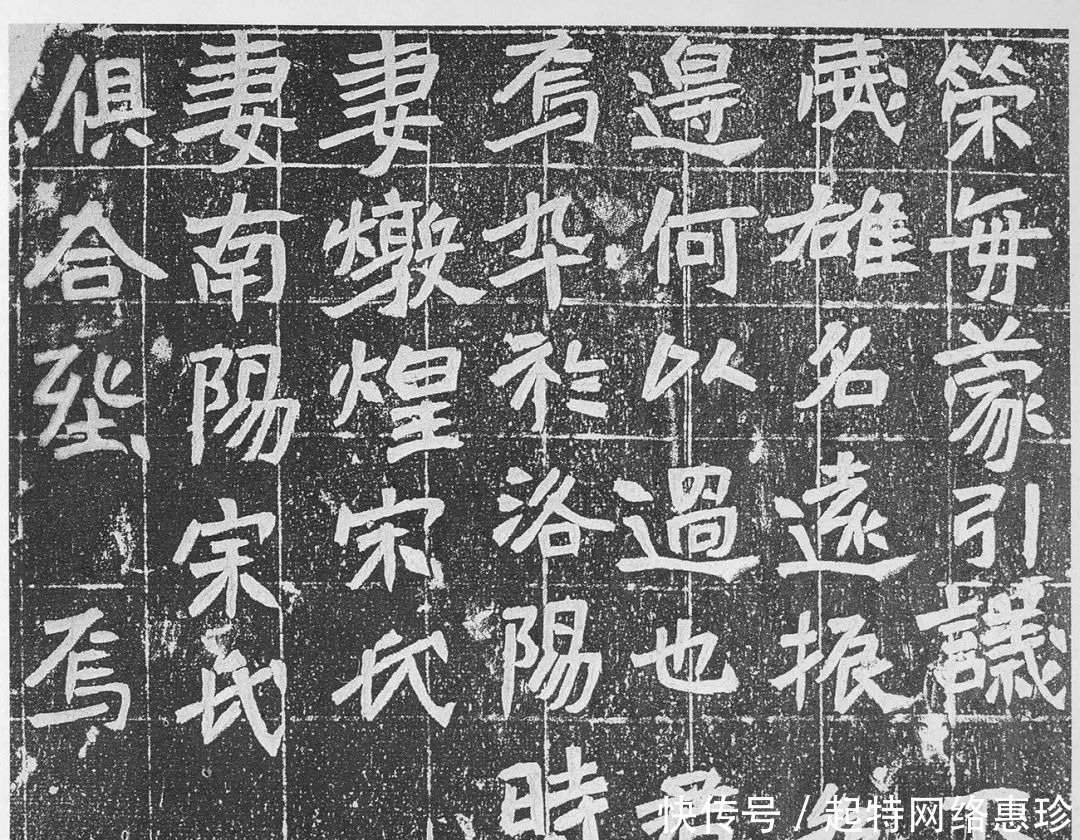 榮每蒙引議
威雄名遠振
邊何以過也
焉卒於洛陽時
妻燉煌宋氏
妻南陽宋氏
俱合塟焉
快传号 / 起特网络惠珍